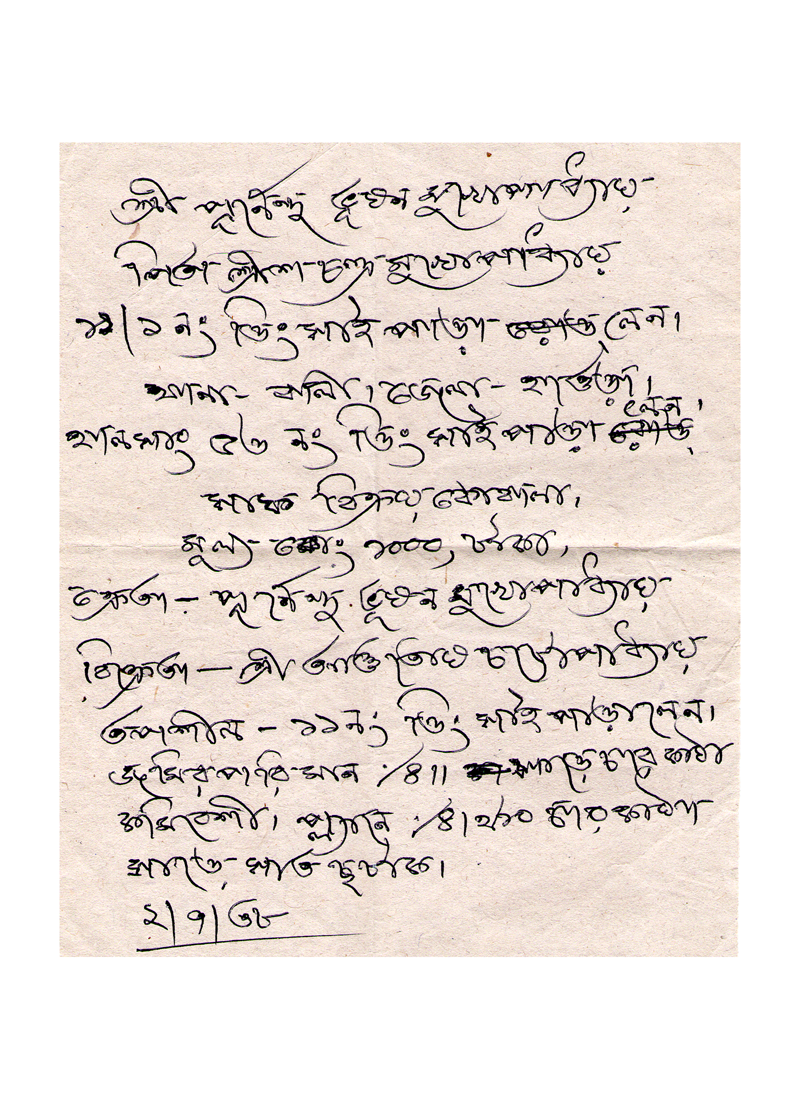 শ্রী পূর্ণেন্দু ভূষন মুখোপাধ্যায়
পিতা শ্রীশ চন্দ্র মুখোপাধ্যায়
১১/১ নং ডিংসাই পাড়া লেন।
থানা - বালী। জেলা - হাওড়া।
হালসাং ৫৬ নং ডিংসাই পাড়া লেন।
সাফ বিক্রয় কোবালা।
মূল্য - ১০০০, টাকা,
ক্রেতা - পূর্ণেন্দু ভূষন মুখোপাধ্যায়
বিক্রেতা — শ্রী আশুতোষ চট্টোপাধ্যায়
তপশীল - ১১নং ডিংসাই পাড়া লেন।
জমির পরিমান ./৪॥ সাড়ে চার কাঠা
কমিবেশী। প্ল্যানে ./৪। চার কাঠা
সাড়ে সাত ছটাক।
২/৭/৩৮